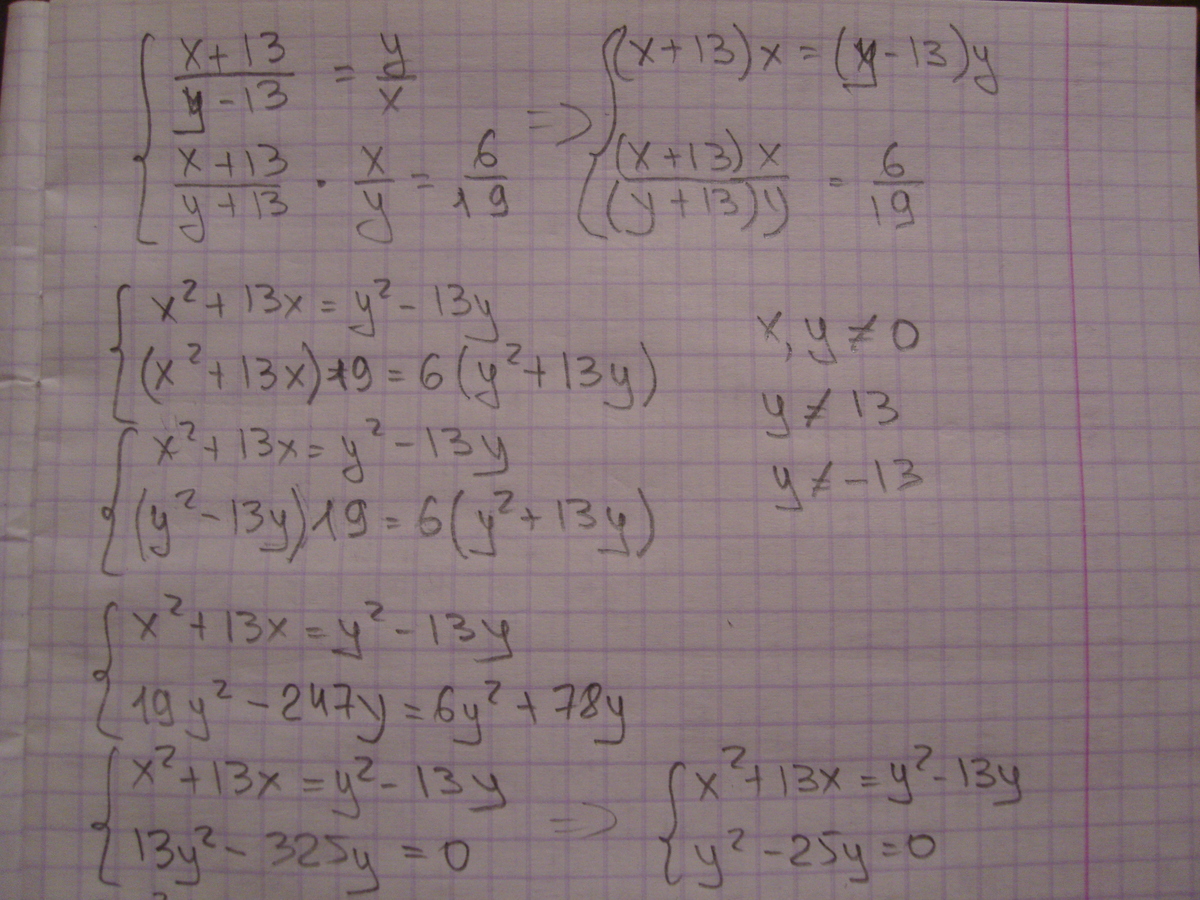 { (x+13)/(y-13) = y/x => { (x+13)x = (y-13)y
(x+13)/(y+13) · x/y = 6/19 (x+13)x/(y+13)y = 6/19
{ x² + 13x = y² - 13y
(x² + 13x)19 = 6(y² + 13y)
x, y ≠ 0
y ≠ 13
y ≠ -13
{ x² + 13x = y² - 13y
(y² - 13y)19 = 6(y² + 13y)
{ x² + 13x = y² - 13y
19y² - 247y = 6y² + 78y
{ x² + 13x = y² - 13y => { x² + 13x = y² - 13y
13y² - 325y = 0 y² - 25y = 0